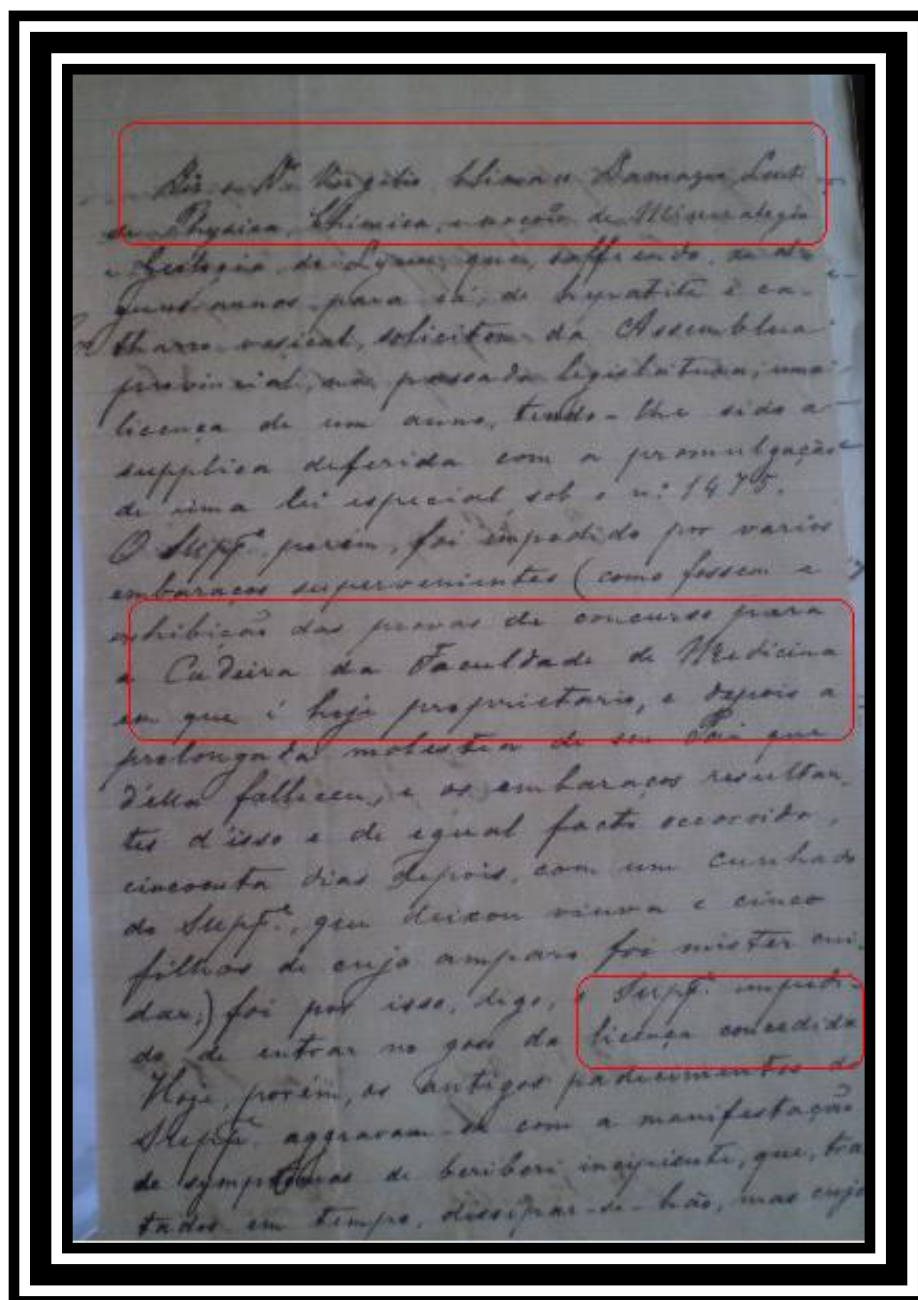 Diz o Dr. Virgilio Climaco Damazio, Lente
de Physica, Chimica, e noções de Mineralogia
e Geologia do Lyceu, que, soffrendo, de al-
guns annos para cá, de hepatite e ca-
tharro vesical, solicitou da Assemblea
provincial, na passada legislatura, uma
licença de um anno, tendo-lhe sido a
supplica deferida com a promulgação
de uma lei especial sob o n.º 1475.
O Suppe. porém, foi impedido por varios
embaraços supervenientes (como fossem a
exhibição das provas de concurso para
a Cadeira da Faculdade de Medicina
em que é hoje proprietario, e depois a
prolongada molestia de seu Pai que
d'ella falleceu, e os embaraços resultan-
tes d'isso e de egual facto occorrido,
cincoenta dias depois, com um cunhado
do Suppe., que deixou viuva e cinco
filhos de cujo amparo foi mister cui-
dar,) foi por isso, digo, o Suppe. impedi-
do de entrar no goso da licença concedida
Hoje, porém, os antigos padecimentos do
Suppe. aggravam-se com a manifestação
de symptomas de beriberi incipiente, que, tra
tados em tempo, dissipar-se-hão, mas cujo